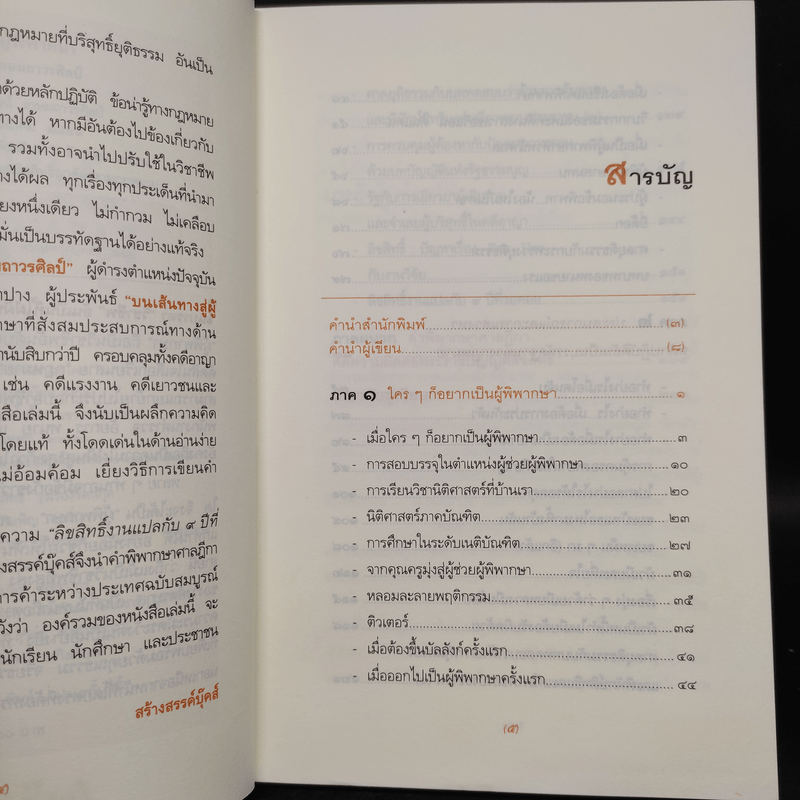 กฎหมายที่บริสุทธิ์ยุติธรรม อันเป็น
ด้วยหลักปฏิบัติ ข้อน่ารู้ทางกฎหมาย
ทางได้ หากมีอันต้องไปข้องเกี่ยวกับ
รวมทั้งอาจนำไปปรับใช้ในวิชาชีพ
ได้ผล ทุกเรื่องทุกประเด็นที่นำมา
หนึ่งเดียว ไม่กำกวม ไม่เคลือบ
มั่นเป็นบรรทัดฐานได้อย่างแท้จริง
ถาวรศิลป์” ผู้ดำรงตำแหน่งปัจจุบัน
ปาง ผู้ประพันธ์ “บนเส้นทางสู่ผู้
ษาที่สั่งสมประสบการณ์ทางด้าน
นับสิบกว่าปี ครอบคลุมทั้งคดีอาญา
เช่น คดีแรงงาน คดีเยาวชนและ
สือเล่มนี้ จึงนับเป็นผลึกความคิด
โดยแท้ ทั้งโดดเด่นในด้านอ่านง่าย
ไม่อ้อมค้อม เยี่ยงวิธีการเขียนคำ
ความ “ลิขสิทธิ์งานแปลกับ ๙ ปีที่
งสรรค์บุ๊คส์จึงนำคำพิพากษาศาลฎีกา
การค้าระหว่างประเทศฉบับสมบูรณ์
วังว่า องค์รวมของหนังสือเล่มนี้ จะ
นักเรียน นักศึกษา และประชาชน
สร้างสรรค์บุ๊คส์
สารบัญ
คำนำสำนักพิมพ์ (๓)
คำนำผู้เขียน (๘)
ภาค ๑ ใคร ๆ ก็อยากเป็นผู้พิพากษา ๑
- เมื่อใคร ๆ ก็อยากเป็นผู้พิพากษา ๓
- การสอบบรรจุในตำแหน่งผู้ช่วยผู้พิพากษา ๑๐
- การเรียนวิชานิติศาสตร์ที่บ้านเรา ๒๐
- นิติศาสตร์ภาคบัณฑิต ๒๓
- การศึกษาในระดับเนติบัณฑิต ๒๗
- จากคุณครูมุ่งสู่ผู้ช่วยผู้พิพากษา ๓๑
- หลอมละลายพฤติกรรม ๓๕
- ติวเตอร์ ๓๘
- เมื่อต้องขึ้นบัลลังก์ครั้งแรก ๔๑
- เมื่อออกไปเป็นผู้พิพากษาครั้งแรก ๔๔
(๕)